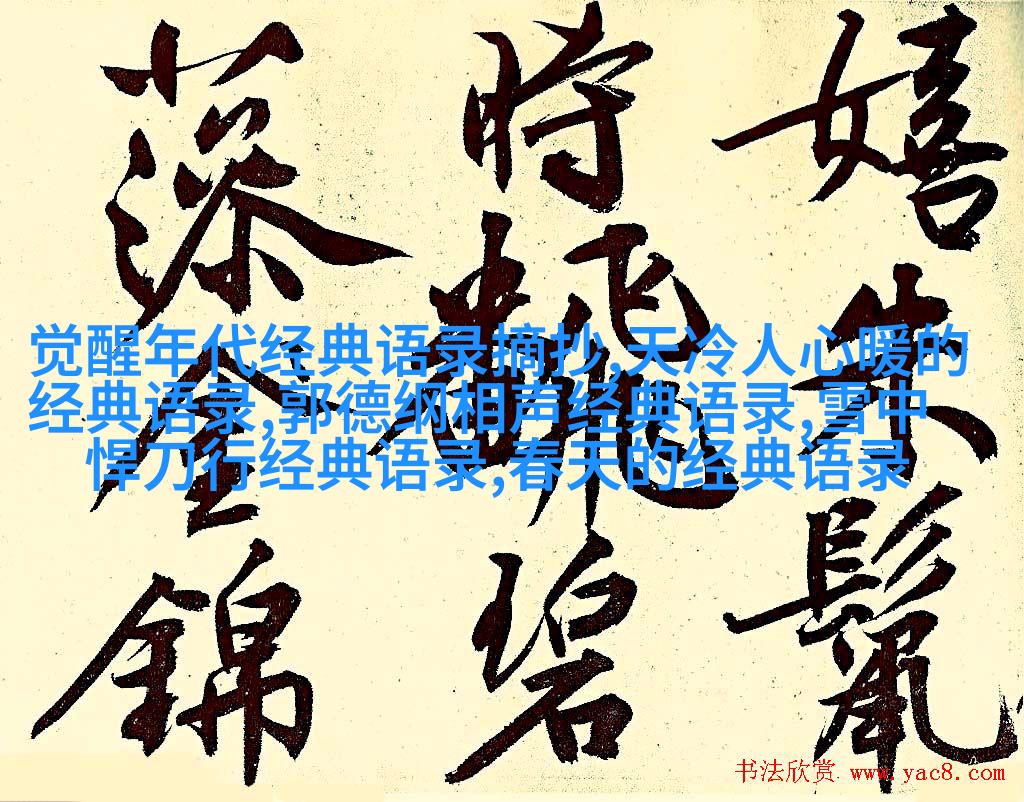 嬉朱鬣
時飜碧
錦
觉醒年代经典语录摘抄,天冷人心暖的
经典语录,郭德纲相声经典语录,雪中
悍刀行经典语录,春天的经典语录
书法欣赏 www.yac8.com